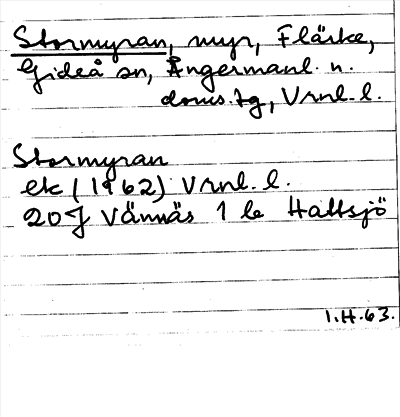 Stormyran, myr, Flärke,
Gideå sn, Ångermanl. n.
doms.tg, Vrnl. l.
Stormyran
ek (1962) Vrnl. l.
20J Vännäs 1 le Hattsjö
I.H.63.